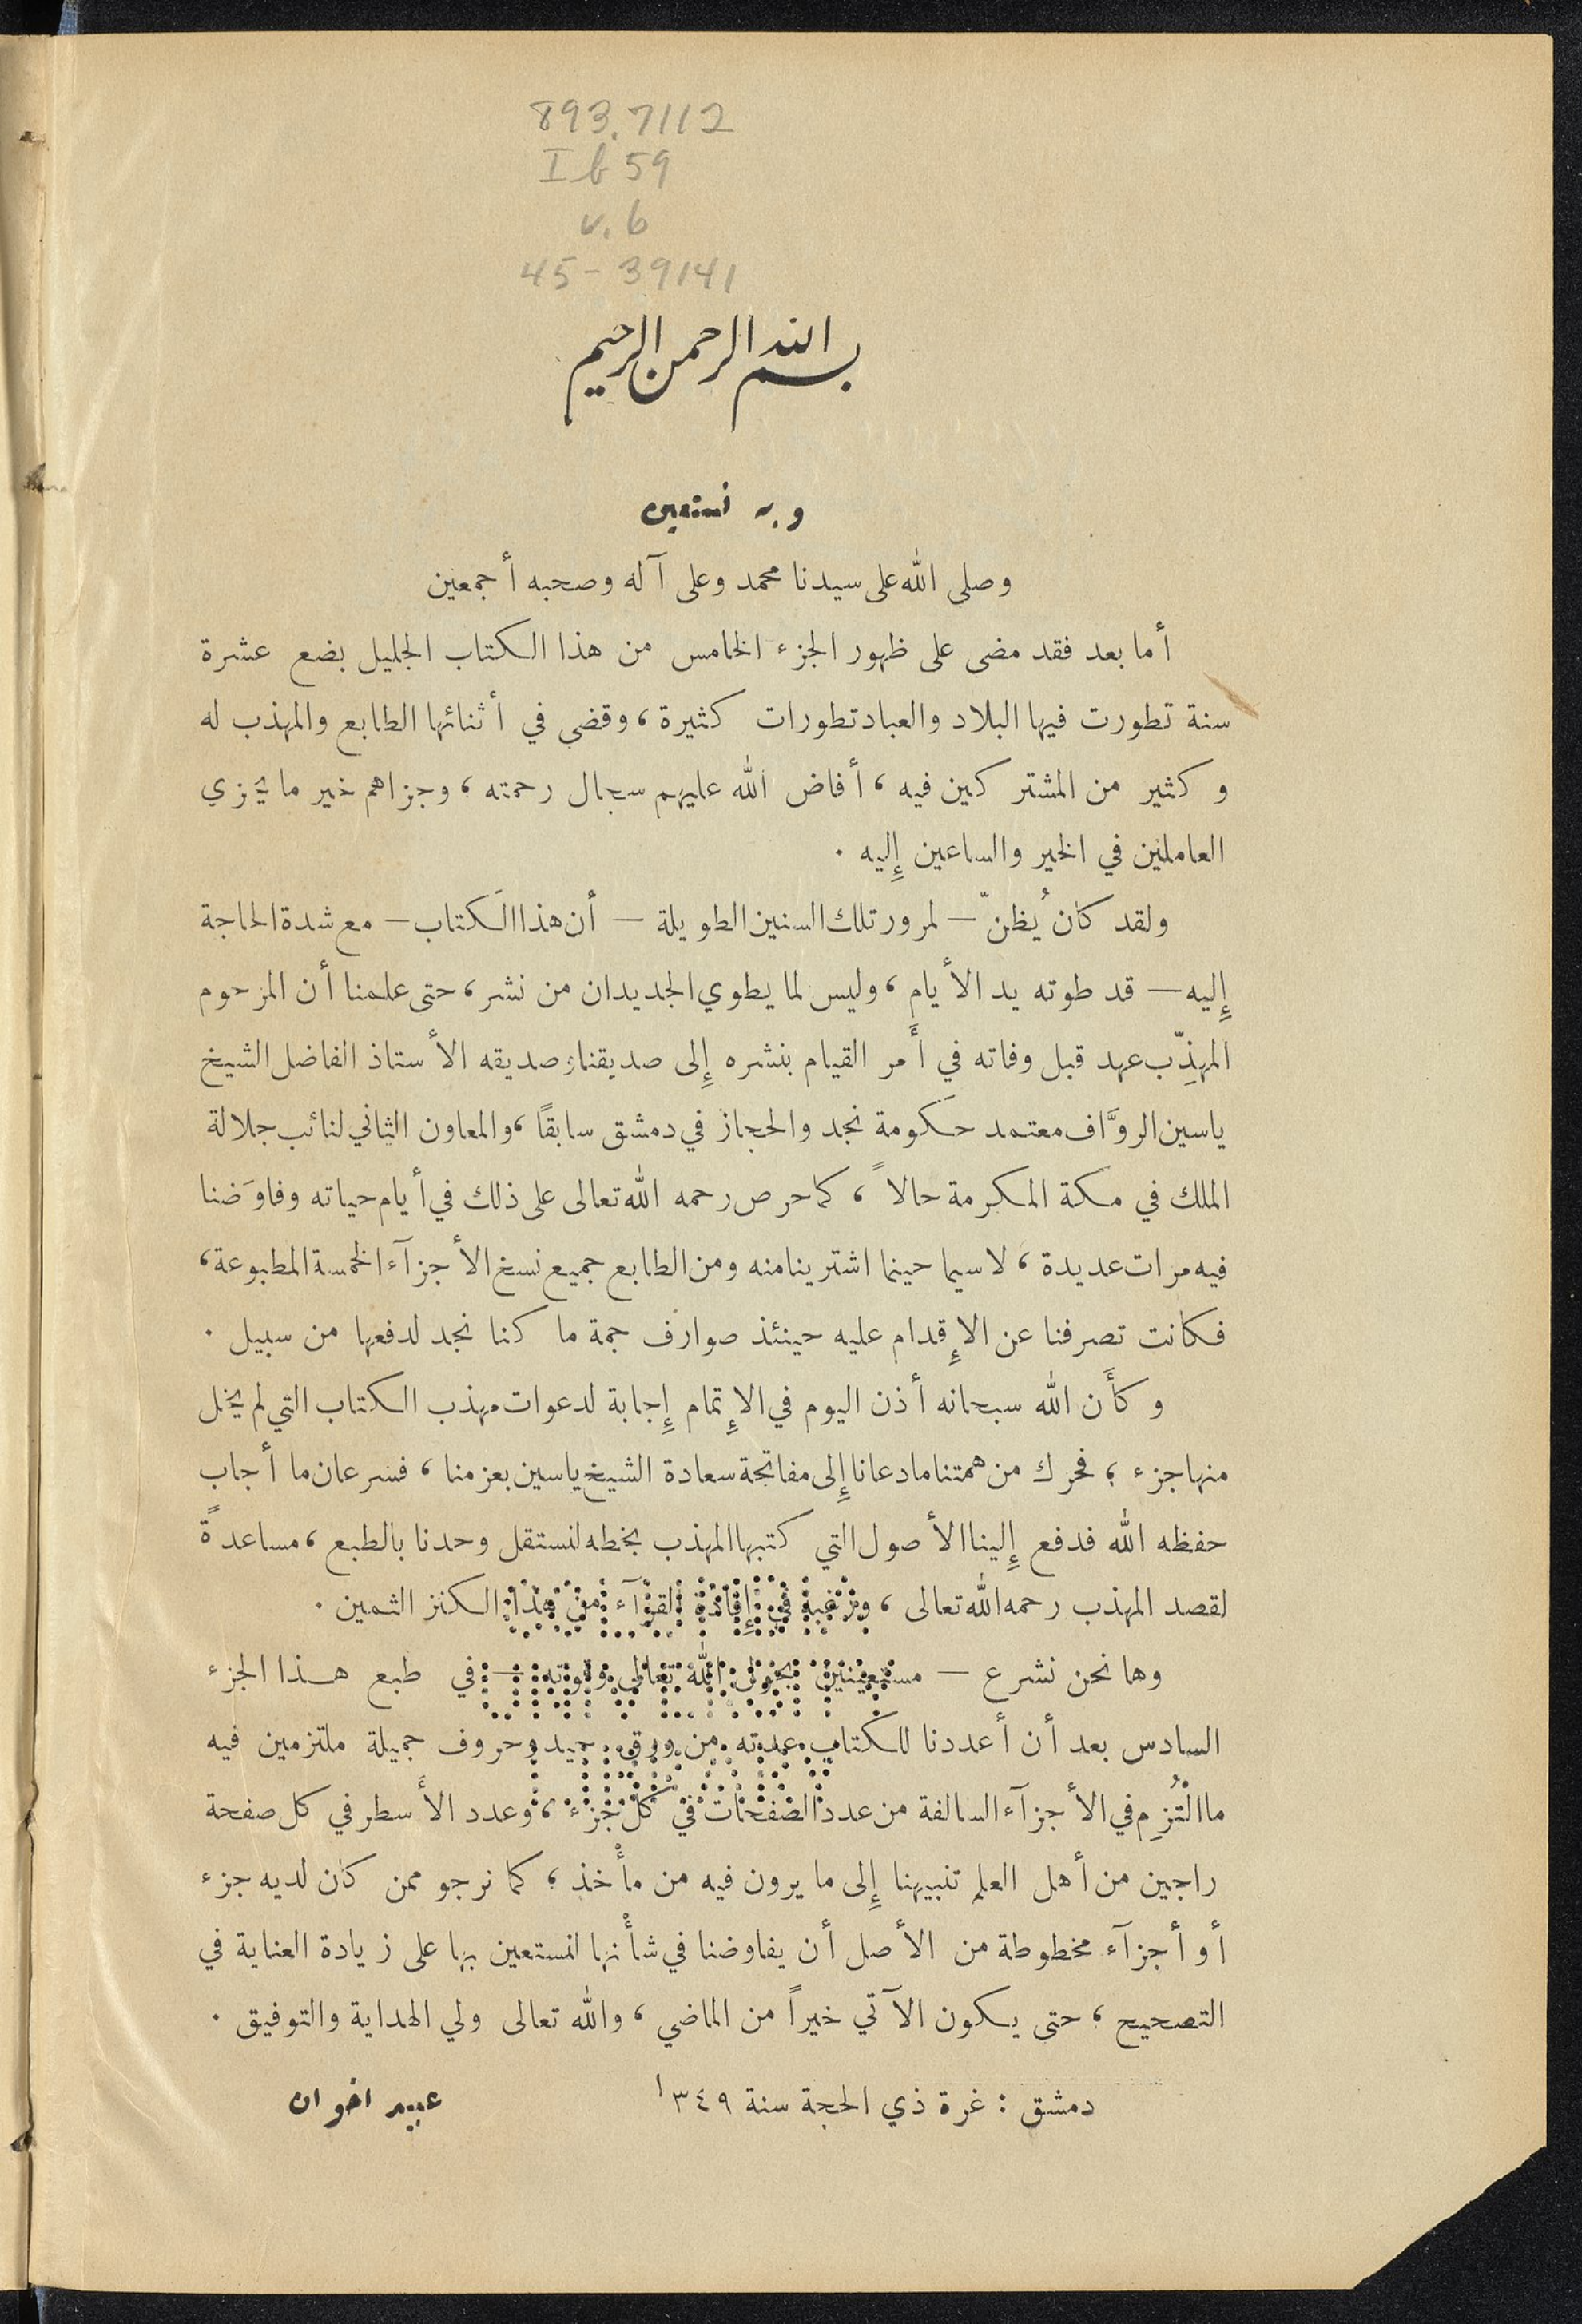 893.7112
Ib 59
v. 6
45-39141
بسم الله الرحمن الرحيم
وبه نستعين
وصلى الله على سيدنا محمد وعلى آله وصحبه أجمعين
أما بعد فقد مضى على ظهور الجزء الخامس من هذا الكتاب الجليل بضع عشرة
سنة تطورت فيها البلاد والعباد تطورات كثيرة ، وقضى في أثنائها الطابع والمهذب له
وكثير من المشتركين فيه ، أفاض الله عليهم سجال رحمته ، وجزاهم خير ما يجزي
العاملين في الخير والساعين إِليه .
ولقد كان يُظنّ — لمرور تلك السنين الطويلة — أن هذا الكتاب — مع شدة الحاجة
إِليه — قد طوته يد الأيام ، وليس لما يطوي الجديدان من نشر ، حتى علمنا أن المرحوم
المهذِّب عهد قبل وفاته في أَمر القيام بنشره إِلى صديقنا وصديقه الأستاذ الفاضل الشيخ
ياسين الروَّاف معتمد حكومة نجد والحجاز في دمشق سابقًا ، والمعاون الثاني لنائب جلالة
الملك في مكة المكرمة حالاً ، كما حرص رحمه الله تعالى على ذلك في أيام حياته وفاوَضنا
فيه مرات عديدة ، لا سيما حينما اشترينا منه ومن الطابع جميع نسخ الأجزآء الخمسة المطبوعة ،
فكانت تصرفنا عن الإِقدام عليه حينئذ صوارف جمة ما كنا نجد لدفعها من سبيل .
وكأَن الله سبحانه أذن اليوم في الإِتمام إِجابة لدعوات مهذب الكتاب التي لم يخل
منها جزء ؛ فحرك من همتنا ما دعانا إِلى مفاتحة سعادة الشيخ ياسين بعزمنا ، فسرعان ما أجاب
حفظه الله فدفع إِلينا الأصول التي كتبها المهذب بخطه لنستقل وحدنا بالطبع ، مساعدةً
لقصد المهذب رحمه الله تعالى ، ورغبة في إِفادة القرآء من هذا الكنز الثمين .
وها نحن نشرع — مستعينين بحول الله تعالى وقوته — في طبع هذا الجزء
السادس بعد أن أعددنا للكتاب عدته من ورق جيد وحروف جميلة ملتزمين فيه
ما الْتُزِم في الأجزآء السالفة من عدد الصفحات في كل جزء ، وعدد الأسطر في كل صفحة
راجين من أهل العلم تنبيهنا إِلى ما يرون فيه من مأْخذ ؛ كما نرجو ممن كان لديه جزء
أو أجزآء مخطوطة من الأصل أن يفاوضنا في شأْنها لنستعين بها على زيادة العناية في
التصحيح ؛ حتى يكون الآتي خيراً من الماضي ، والله تعالى ولي الهداية والتوفيق .
دمشق : غرة ذي الحجة سنة ١٣٤٩ عبيد اخوان